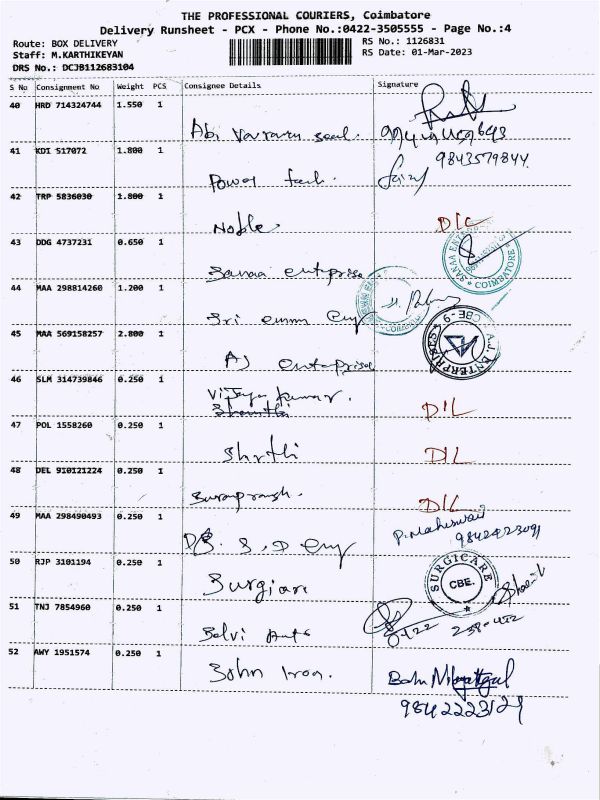 THE PROFESSIONAL COURIERS, Coimbatore
Delivery Runsheet - PCX - Phone No.:0422-3505555 - Page No.:4
Route: BOX DELIVERY
RS No.: 1126831
Staff: M.KARTHIKEYAN
RS Date: 01-Mar-2023
DRS No.: DCJB112683104
S No Consignment No Weight PCS Consignee Details Signature
40 HRD 714324744 1.550 1
41 KDI 517072 1.800 1 9843579844
Power Tech.
42 TRP 5836030 1.800 1
Noble DIL
43 DDG 4737231 0.650 1 SANAA ENTERPRISES COIMBATORE
Sanaa enterprise
44 MAA 298814260 1.200 1
Sri
45 MAA 569158257 2.800 1 A.J. ENTERPRISES CBE-9
AJ enterprise
46 SLM 314739846 0.250 1
Vijaya Kumar. DIL
47 POL 1558260 0.250 1
Shakthi DIL
48 DEL 910121224 0.250 1
DIL
49 MAA 298490493 0.250 1 P. Maheswari
9842423091
50 RJP 3101194 0.250 1 SURGICARE CBE.
51 TNJ 7854960 0.250 1
Selvi Auto
52 AWY 1951574 0.250 1
John Iron.
9842223129